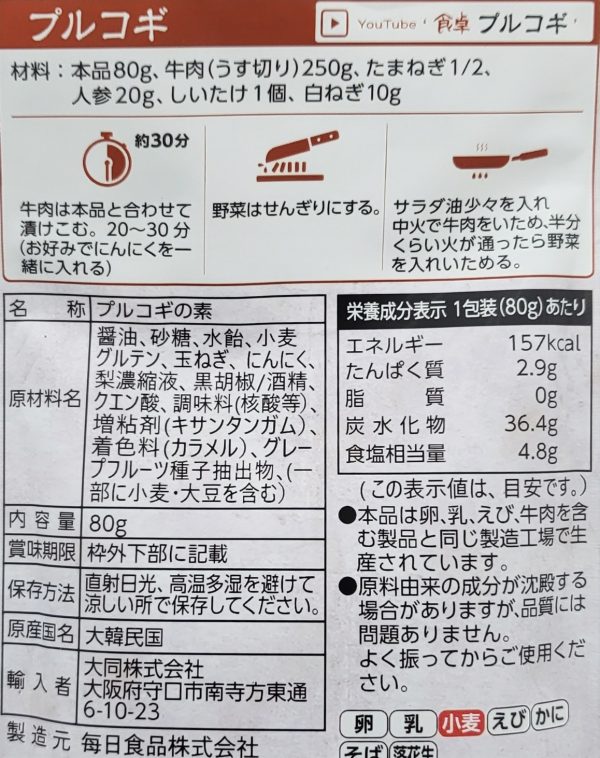 プルコギ
YouTube '食卓 プルコギ'
材料：本品80g、牛肉(うす切り)250g、たまねぎ1/2、
人参20g、しいたけ1個、白ねぎ10g
約30分
牛肉は本品と合わせて
漬けこむ。20～30分
(お好みでにんにくを一
緒に入れる)
野菜はせんぎりにする。
サラダ油少々を入れ
中火で牛肉をいため、半分
くらい火が通ったら野菜
を入れいためる。
名称 プルコギの素
原材料名
醤油、砂糖、水飴、小麦
グルテン、玉ねぎ、にんにく、
梨濃縮液、黒胡椒/酒精、
クエン酸、調味料(核酸等)、
増粘剤(キサンタンガム)、
着色料(カラメル)、グレー
プフルーツ種子抽出物、(一
部に小麦・大豆を含む)
内容量 80g
賞味期限 枠外下部に記載
保存方法
直射日光、高温多湿を避けて
涼しい所で保存してください。
原産国名 大韓民国
輸入者
大同株式会社
大阪府守口市南寺方東通
6-10-23
製造元 毎日食品株式会社
栄養成分表示 1包装(80g)あたり
エネルギー 157kcal
たんぱく質 2.9g
脂質 0g
炭水化物 36.4g
食塩相当量 4.8g
(この表示値は、目安です。)
●本品は卵、乳、えび、牛肉を含
む製品と同じ製造工場で生
産されています。
●原料由来の成分が沈殿する
場合がありますが、品質には
問題ありません。
よく振ってからご使用くだ
さい。
卵 乳 小麦 えび かに
そば 落花生